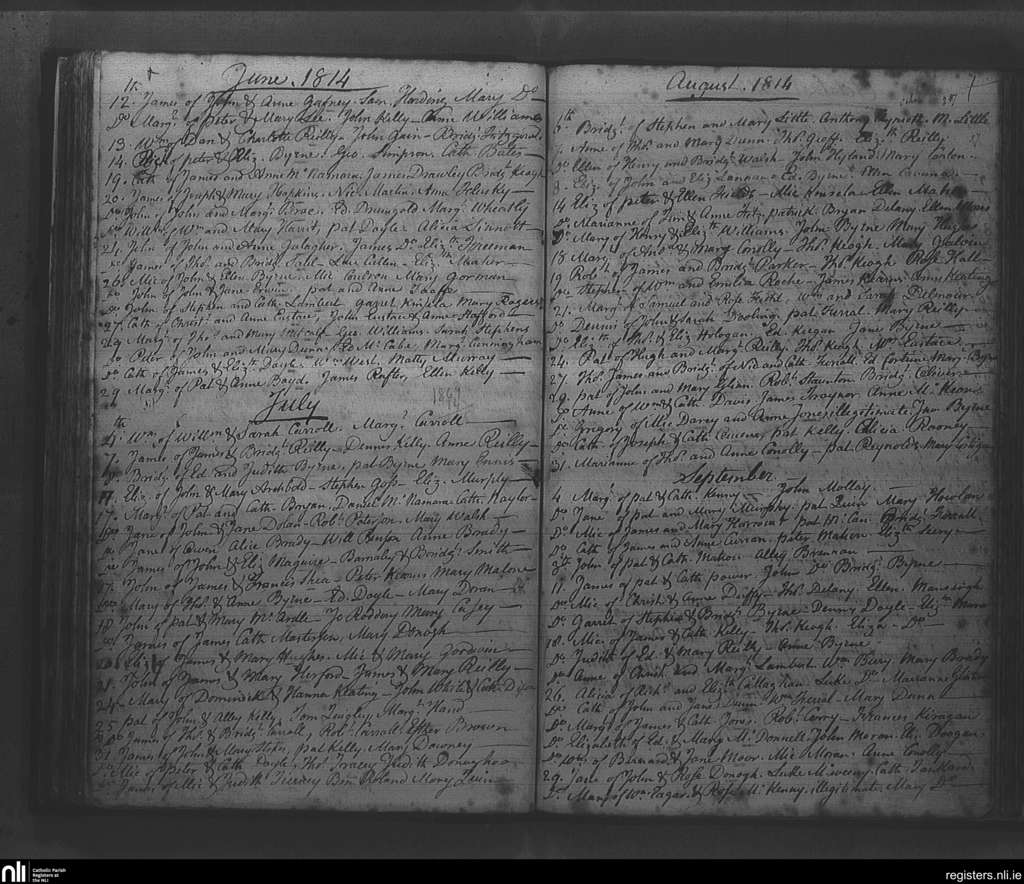 June. 1814
12. James of John & Anne Gafney. Sam. Harding Mary Do
Do Margt of Peter & Mary Lee. John Kelly - Anne Williams
13. Wm of Dan & Charlotte Reilly - John Gain - Bridgt Fitzgerald
14. of peter & Eliz. Byrne. Geo. Simpson. Cath Bates
19. Cath of James and Anne McNamara. James Drawley Bridgt Keogh
20. James of Joseph & Mary Hopkins. Nic Martin. Anne
Do John of John and Margt Brae. Ed. Margt Wheatly
Do Wm of Wm and Mary Harrit. pat Doyle. Alicia Sinnott
21. John of John and Anne Galagher. James Do Elizth Freeman
Do James of Thos and Bridgt Fall. Luke Cullen - Elizth Maher
26. Mic of John & Ellen Byrne - Mic Coulson Mary Gorman
Do John of John & Jane Erwin. pat and Anne Taaffe
Do John of Stephen and Cath Lambert garret Kinsela Mary Rogers
27. Cath of Christ and Anne Eustace. John Eustace & Anne Stafford
29. Margt of Thos and Mary Metcalf Geo. Williams. Sarah Stephens
Do Peter of John and Mary Dunn. Ed McCabe. Margt Cunningham
Do Cath of James & Eliz. Doyle. Wm West. Matty Murray
29 Margt of Pat & Anne Boyd. James Rafter, Ellen Kelly
July
4. Wm of Willm & Sarah Carroll. Margt Carroll
7. James of James & Bridgt Reilly - Dennis Kelly Anne Reilly
Do Bridgt of Ed and Judith Byrne, pat Byrne Mary Ennis
Eliz. of John & Mary Archbold - Stephen Goss - Eliz. Murphy
17. Margt of Pat and Cath. Bryan. Daniel McNamara Cath. Naylor
Do Jane of John & Jane Dolan - Robt Peterson. Mary Walsh
Do Jane of Owen Alice Brady - Will Anne Brady
Do James of John & Eliz Maguire - Barnaby & Bridgt Smith
17. John of James & Frances Shea - Peter Kearns Mary Malone
Do Mary of Thos & Anne Byrne - Ed. Doyle - Mary Doran
18. John of pat & Mary McArdle - Jo Mary Casey
Do James of James Cath Masterson, Mary Donogh
Eliz of James & Mary Hughes. Mic & Mary Gordwin
John of James & Mary Herford - James & Mary Reilly
24. Mary of Dominick & Hanna Keating - John White & Cath Dixon
25 pat of John & Alley Kelly, Tom Margt Hand
Do James of Thos & Bridgt Carroll, Robt Carroll Esther Brown
31. James of John & Mary pat Kelly, Mary Downey
Do Mic of Peter & Cath Doyle. Thos Tracey Judith Donoghoe
Do James of Mic & Judith Tierney Bm Roland Mary Levin
August. 1814
6. Bridgt of Stephen and Mary Little Anthony Reynolds M. Little
7. Anne of Thos and Mary Dunn. Thos Goff Elizth Reilly
Do Ellen of Henry and Bridgt Walsh John Hyland Mary Conlon
8. Eliz. of John and Eliz Lannan Ed. Byrne Wm Cavanah
14 Eliz of peter & Ellen - Mic Kinsela Ellen Maher
Do Marianne of Jim & Anne Fitzpatrick Bryan Delany Ellen Moore
Do Mary of Henry & Elizth Williams John Byrne Mary
18 Mary of And & Mary Conolly Thos Keogh. Mary Galvin
19 Robt of James and Bridgt Parker - Thos Keogh Rose Hall
Do Stephen of Wm and Emilia Roche - James Kearns Anne Keating
21. Margt of Samuel and Rose Wm and Sarah Delmoior
Do Dennis of John & Sarah Gooling pat Ferral. Mary Reilly
Do Elizth of Thos & Eliz Hologan Ed. Keegan Jane Byrne
24. Pat of Hugh and Margt Reilly. Thos Keogh Wm Eustace
27. Thos James and Bridgt of Nic and Cath Ferrall Ed Fortune Mary Byrne
29. pat of John and Mary Egan. Robt Staunton Bridgt Oliver
Do Anne of Wm & Cath Davis James Traynor Anne McKeon
Do Gregory of Mic Darcy and Anne Jones illegitimate Jas Byrne
Do Cath. of Joseph & Cath pat Kelly Alicia Rooney
31. Marianne of Thos and Anne Conolly - pat Reynolds Mary
September
4. Margt of pat & Cath. Kenny - John Mollay.
Do Jane of pat and Mary Murphy. pat Quin Mary Howlan
Do Mic of James and Mary Harrison pat McCan Bridgt Farrall
Do Cath of James and Anne Curran, pat Mahon Eliz Seery
Do John of pat & Cath. Mahon Alley Brennan
11. James of pat & Cath power John Do Bridgt Byrne
Do Mic of Christ & Anne Duffy - Thos Delany Ellen
Do Garret of Stephen & Bridgt Byrne - Denny Doyle - Elizth
18. Mic of James & Cath Kelly Thos Keogh. Eliza Do
Do Judith of Ed. & Mary Reilly - Anne Byrne
Do Anne of Christ and Margt Lambert Wm Bury Mary Brady
26. Alicia of Richd and Elizth Callaghan Luke Do Marianne
Do Cath of John and Jane Dunn Wm Mary Dunn
Do Margt of James & Cath Jones. Robt Corry - Frances Kiragan
Do Elizabeth of Ed. & Mary McDonnell John Moran Doogan
Do Wm of Bernard & Jane Moor. Mic Moran. Anne Conolly
29. Jane of John & Rose Donogh. Luke Cath Tankard
Do Mary of Wm Eagar & Rose McKenny, illegitimate, Mary Do
nli
Catholic Parish
Registers at
the NLI
registers.nli.ie